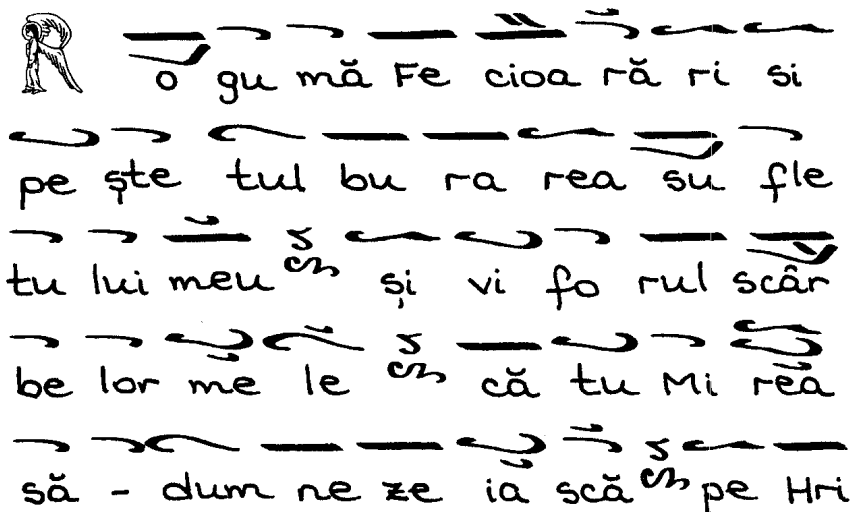 Ro gu mă Fe cioa ră ri si
pe ște tul bu ra rea su fle
tu lui meu și vi fo rul scâr
be lor me le că tu Mi rea
să - dum ne ze ia scă pe Hri